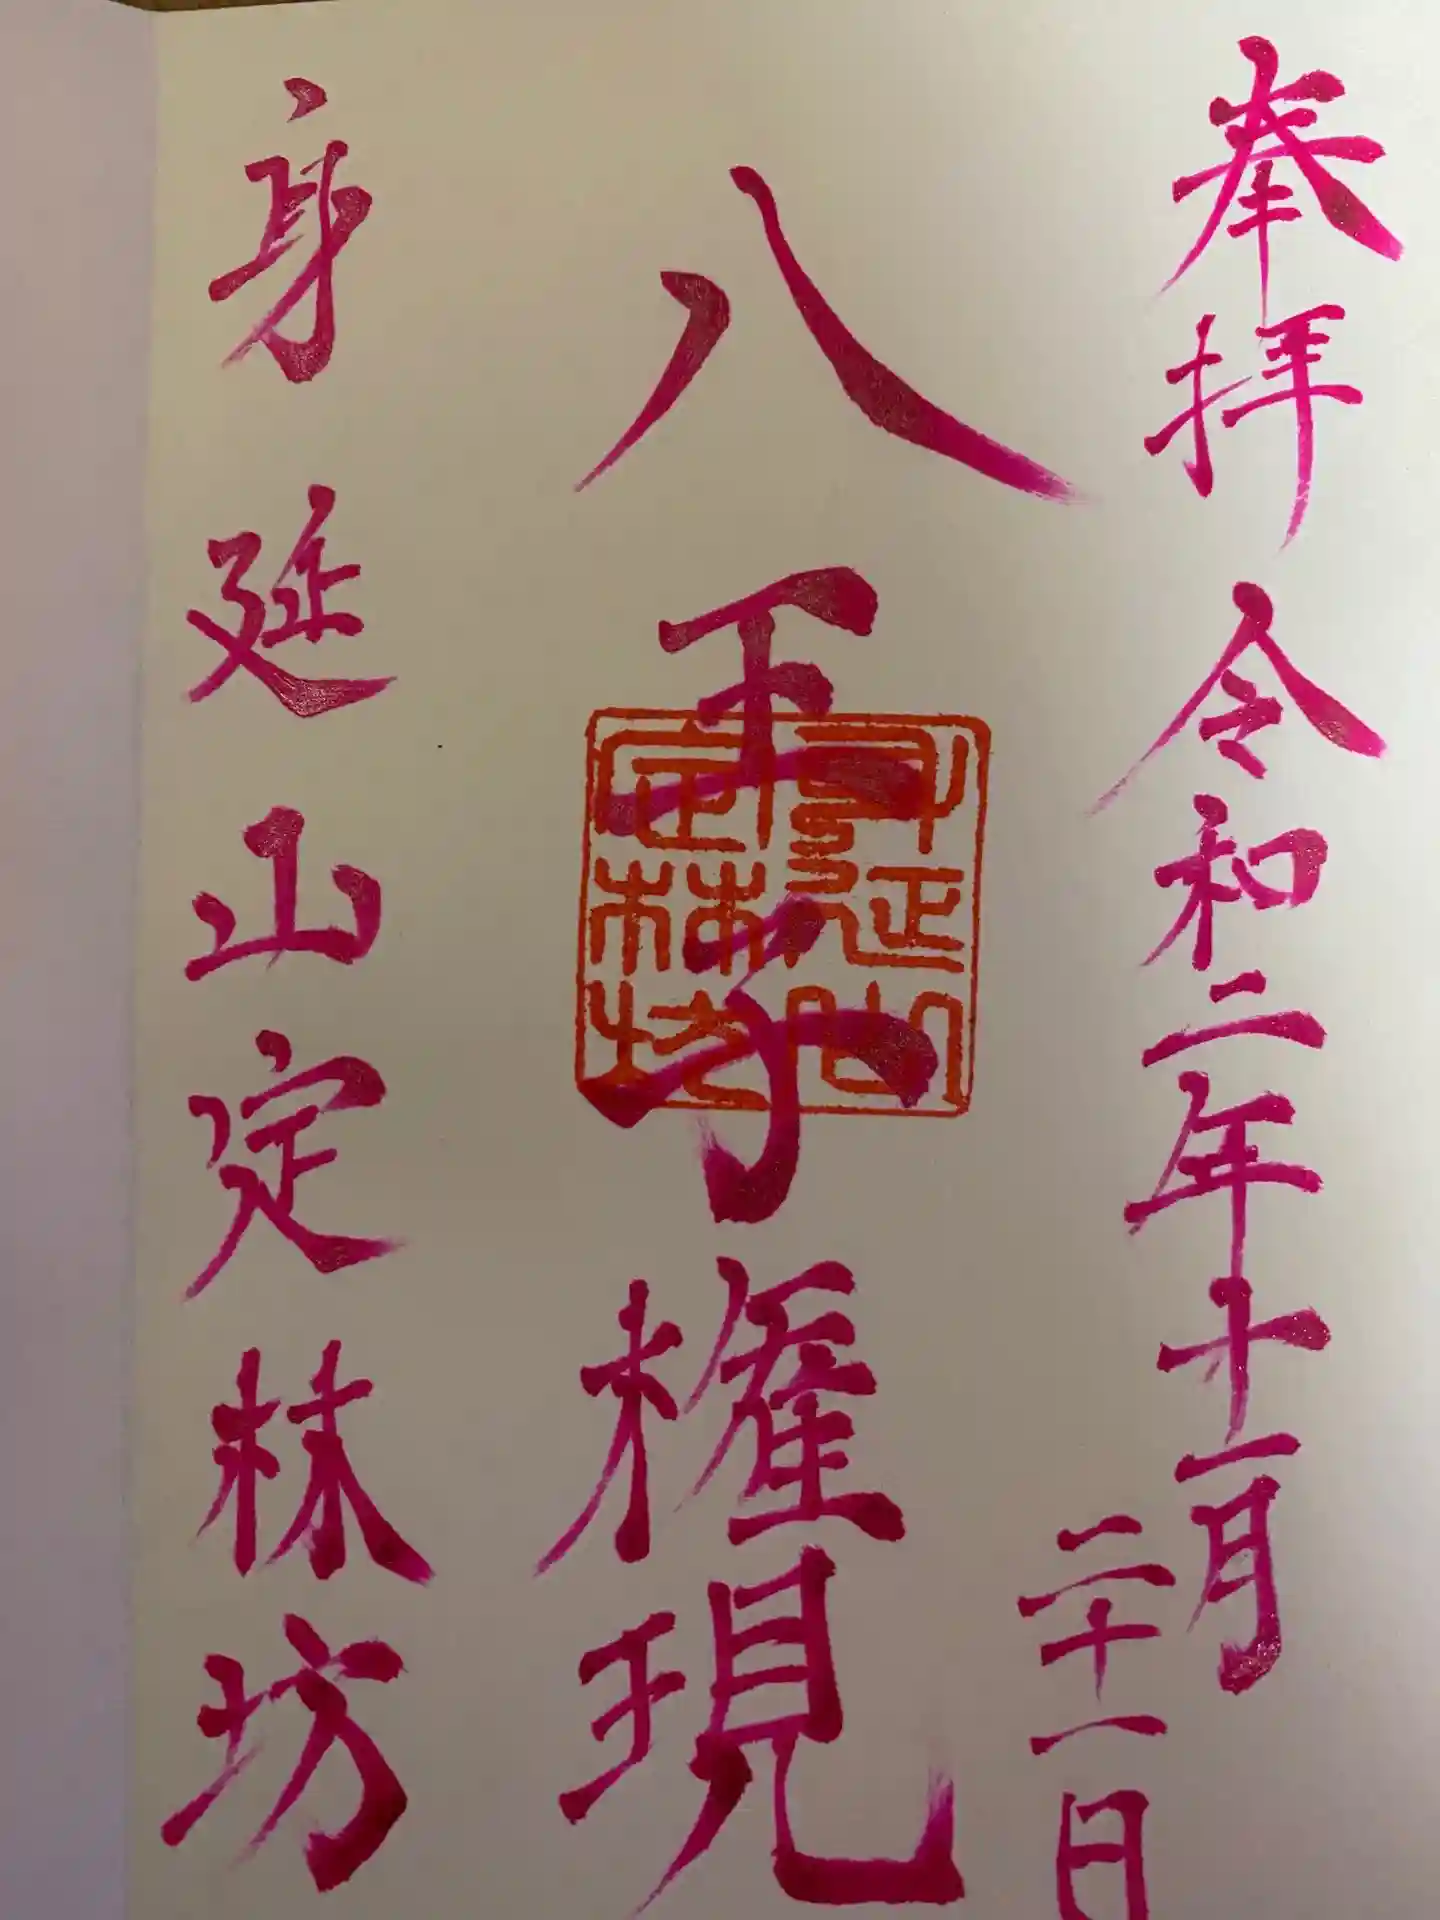 奉拝 令和二年十一月
二十一日
八王子権現
身延山
定林坊
身延山定林坊